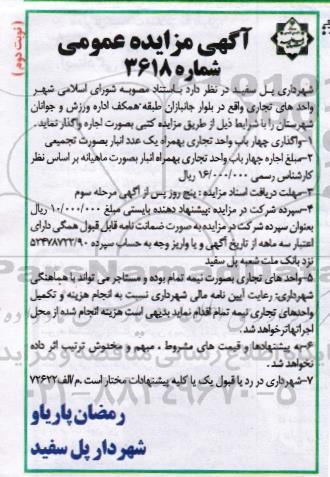 (نوبت دوم)
آگهی مزایده عمومی
شماره ۳۶۱۸
شهرداری پل سفید در نظر دارد باستناد مصوبه شورای اسلامی شهر
واحد های تجاری واقع در بلوار جانبازان طبقه همکف اداره ورزش و جوانان
شهرستان را با شرایط ذیل از طریق مزایده کتبی بصورت اجاره واگذار نماید.
۱-واگذاری چهار باب واحد تجاری بهمراه یک عدد انبار بصورت تجمیعی
۲-مبلغ اجاره چهار باب واحد تجاری بهمراه انبار بصورت ماهیانه بر اساس نظر
کارشناس رسمی ۱۶/۰۰۰/۰۰۰ ریال
۳-مهلت دریافت اسناد مزایده : پنج روز پس از آگهی مرحله سوم
۴-سپرده شرکت در مزایده :پیشنهاد دهنده بایستی مبلغ ۱۰/۰۰۰/۰۰۰ ریال
بعنوان سپرده شرکت در مزایده به صورت ضمانت نامه قابل قبول همگی دارای
اعتبار سه ماهه از تاریخ آگهی و یا واریز وجه به حساب سپرده ۵۲۴۷۸۷۲۲/۹۰
نزد بانک ملت شعبه پل سفید
۵-واحد های تجاری بصورت نیمه تمام بوده و مستاجر می تواند با هماهنگی
شهرداری: رعایت آیین نامه مالی شهرداری نسبت به انجام هزینه و تکمیل
واحدهای تجاری نیمه تمام اقدام نماید بدیهی است هزینه انجام شده از محل
اجراتها تر خواهد شد.
۶-به پیشنهادها و قیمت های مشروط ، مبهم و مخدوش ترتیب اثر داده
نخواهد شد.
۷-شهرداری در رد یا قبول یک یا کلیه پیشنهادات مختار است .م/الف۷۲۶۲۲
رمضان پاریاو
شهردار پل سفید
۰۲۱-۸۸۳۴۹۶۷۰-۵